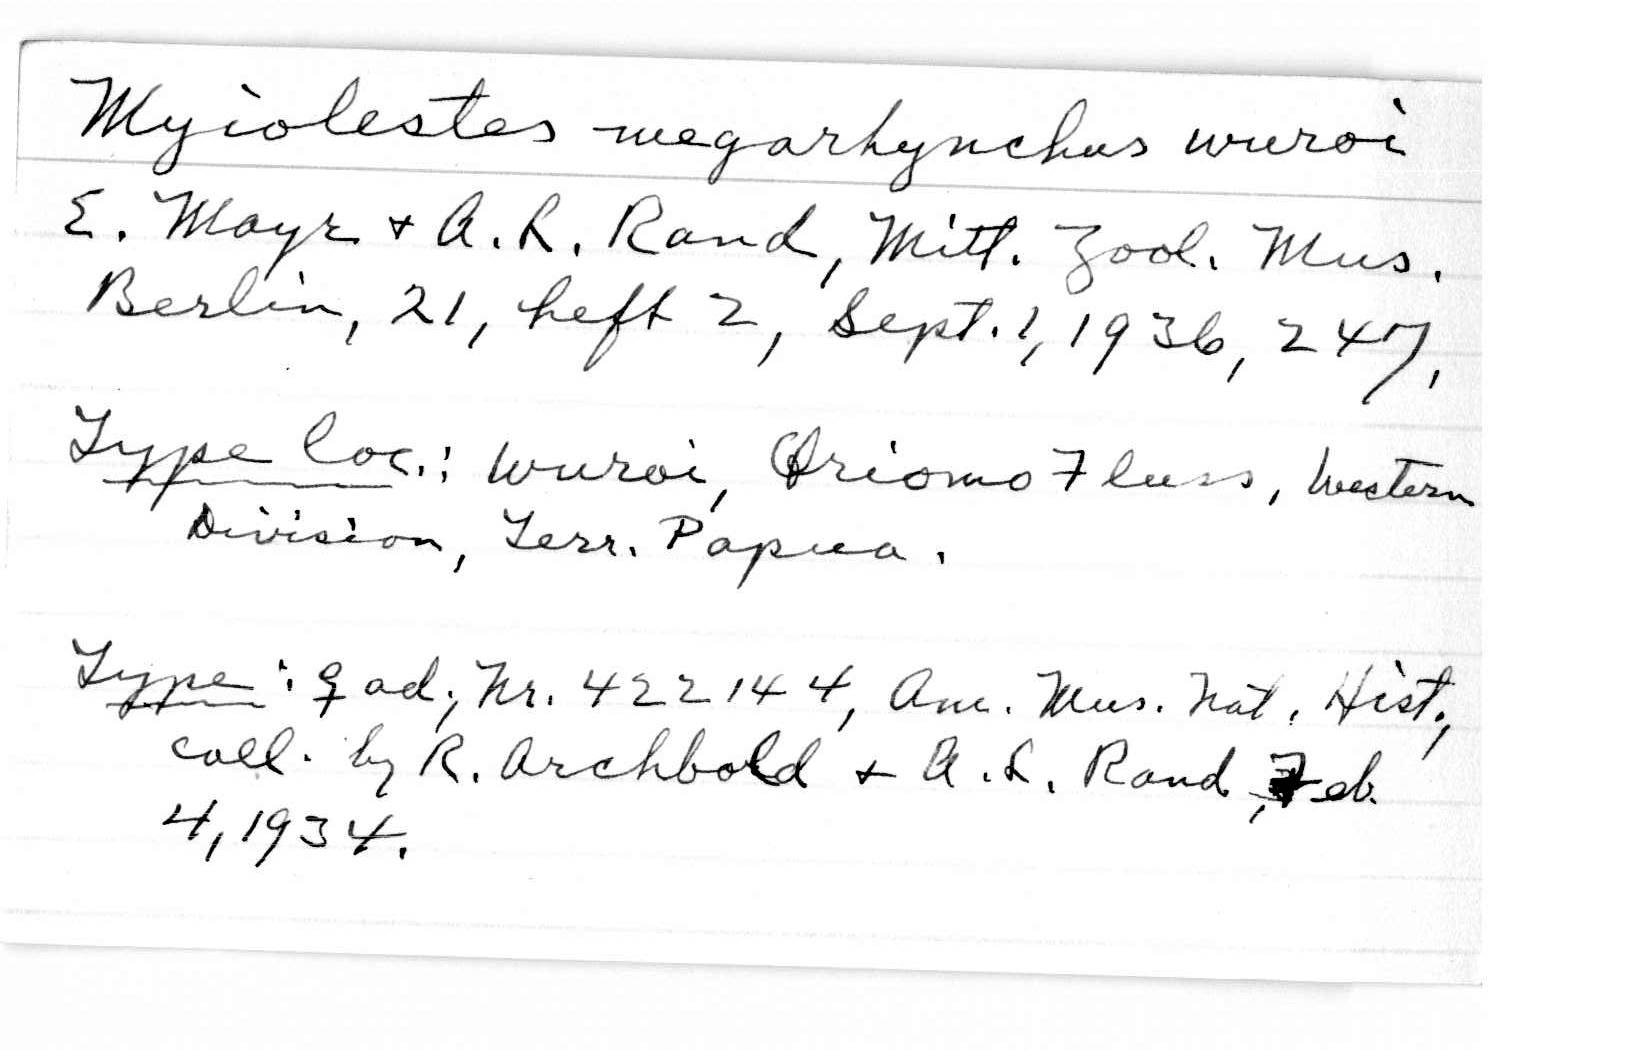 Myiolestes megarhynchus wuroi
E. Mayr + A. L. Rand, Mitt. Zool. Mus.
Berlin, 21, heft 2, Sept. 1, 1936, 247.
Type loc.: Wuroi, Oriomo Fluss, Western
Division, Terr. Papua.
Type: ♀ ad; Nr. 422144, Am. Mus. Nat. Hist.,
coll. by R. Archbold + A. L. Rand, Feb.
4, 1934.